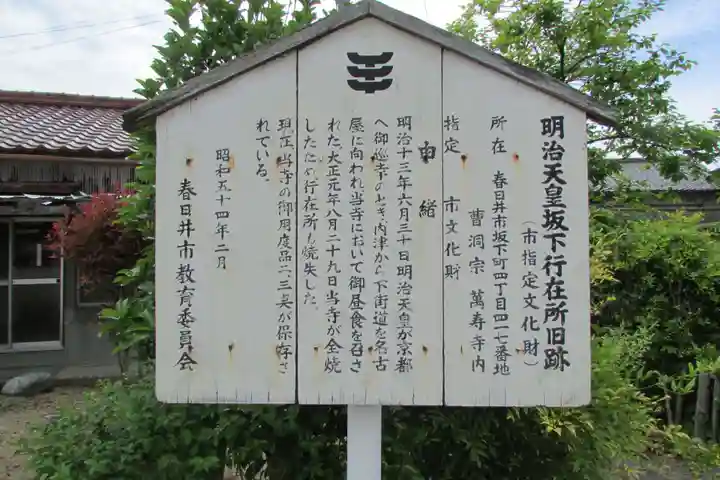 明治天皇坂下行在所旧跡
（市指定文化財）
所在　春日井市坂下町四丁目四一七番地
曹洞宗　萬寿寺内
指定　市文化財
由緒
明治十三年六月三十日明治天皇が京都
へ御巡幸のとき、内津から下街道を名古
屋に向われ当寺において御昼食を召さ
れた。大正元年八月二十九日当寺が全焼
したため行在所も焼失した。
現在、当寺の御用度品二、三点が保存さ
れている。
昭和五十四年二月
春日井市教育委員会